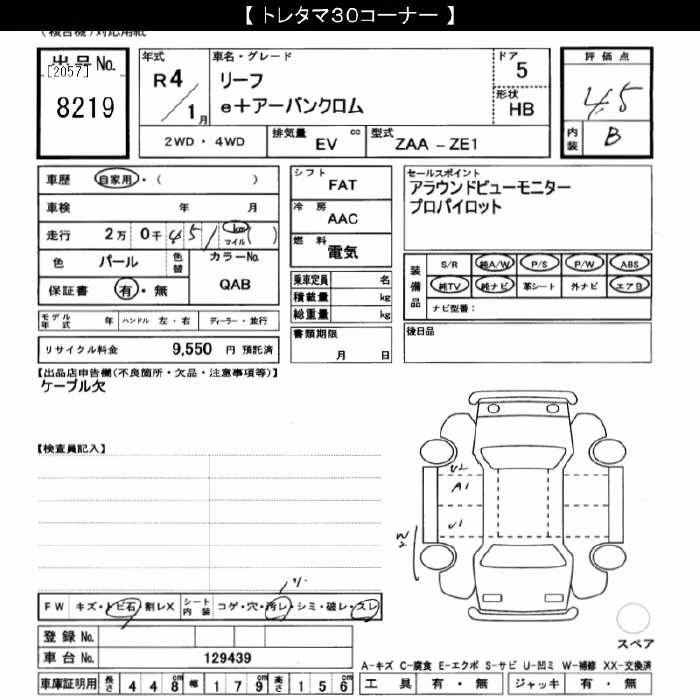 【 トレタマ30コーナー 】
(複合機)対応用紙
出品No.
[2057]
8219
年式
R4/1月
車名・グレード
リーフ
e+アーバンクロム
ドア
5
形状
HB
2WD・4WD
排気量 EV cc
型式 ZAA-ZE1
評価点
4.5
内装 B
車歴 自家用・( )
車検 年 月
走行 2万 0千 4 5 1 km マイル ( )
色 パール 色替
カラーNo. QAB
保証書 有・無
モデル年式 年 ハンドル 左・右 ディーラー・並行
リサイクル料金 9,550 円 預託済
シフト FAT
冷房 AAC
燃料 電気
乗車定員 名
積載量 kg
総重量 kg
書類期限
月 日
セールスポイント
アラウンドビューモニター
プロパイロット
装備品
S/R 純A/W P/S P/W ABS
純TV 純ナビ 革シート 外ナビ エアB
ナビ型番:
後日品
【出品店申告欄(不良箇所・欠品・注意事項等)】
ケーブル欠
【検査員記入】
U2
A1
U1
W2
FW キズ・トビ石・割レX シート内装 コゲ・穴・汚レ・シミ・破レ・スレ
登録No.
車台No. 129439
車庫証明用 長さ 448cm 幅 179cm 高さ 156cm
スペア
A-キズ C-腐食 E-エクボ S-サビ U-凹ミ W-補修 XX-交換済
工具 有・無 ジャッキ 有・無